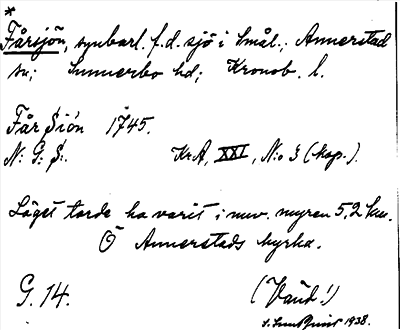 *
Fårsjön, synbarl. f.d. sjö i Smål.; Annerstad
sn; Sunnerbo hd; Kronob. l.
Får Siön 1745.
N: G: S:. KrA, XXI, N:o 3 (kop.).
Läget torde ha varit i nuv. myren 5,2 km.
Ö Annerstads kyrka.
G. 14. (Vänd!)
1938.